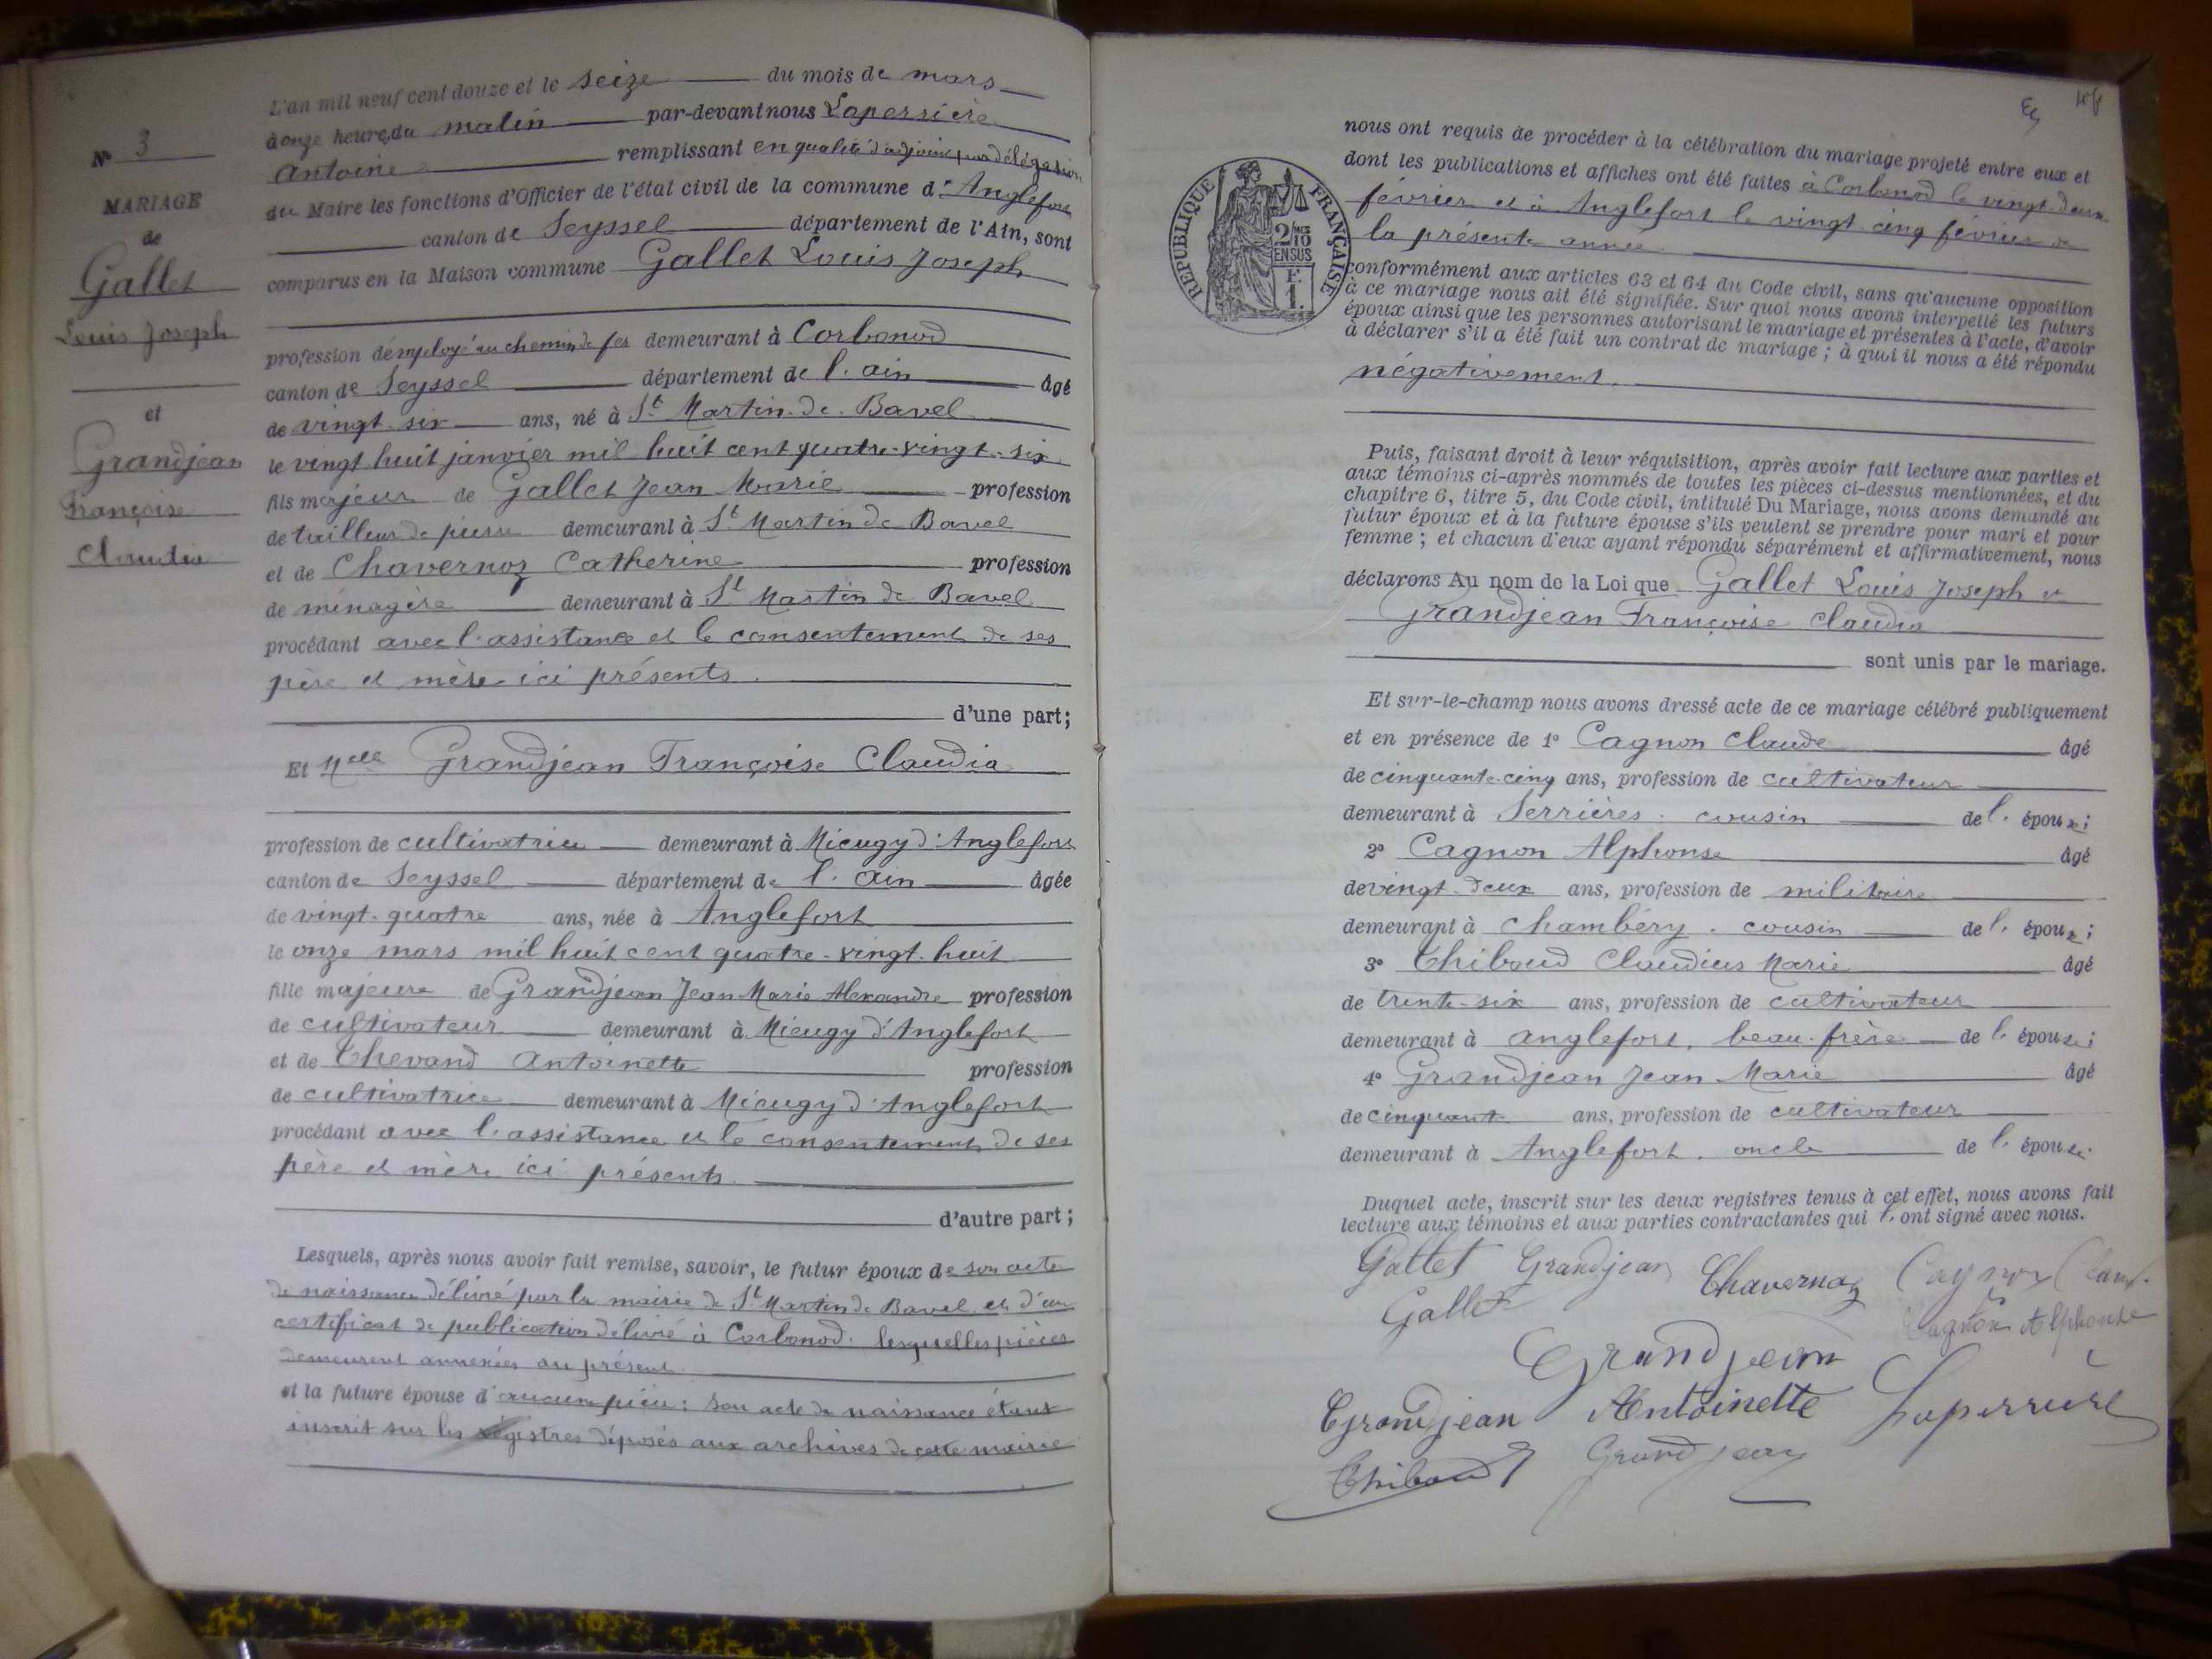 N° 3
MARIAGE
de
Gallet
Louis Joseph
et
Grandjean
Françoise
Claudia
L'an mil neuf cent douze et le seize du mois de mars
à onze heure du matin par-devant nous Laperrière
Antoine remplissant en qualité d'adjoint par délégation
du Maire les fonctions d'Officier de l'état civil de la commune d'Anglefort
canton de Seyssel département de l'Ain, sont
comparus en la Maison commune Gallet Louis Joseph
profession d'employé au chemin de fer demeurant à Corbonod
canton de Seyssel département de l'ain âgé
de vingt-six ans, né à St Martin-de-Bavel
le vingt huit janvier mil huit cent quatre-vingt-six
fils majeur de Gallet Jean Marie profession
de tailleur de pierre demeurant à St Martin de Bavel
et de Chavernoz Catherine profession
de ménagère demeurant à St Martin de Bavel
procédant avec l'assistance et le consentement de ses
père et mère ici présents.
d'une part;
Et Melle Grandjean Françoise Claudia
profession de cultivatrice demeurant à Mieugy d'Anglefort
canton de Seyssel département de l'ain âgée
de vingt-quatre ans, née à Anglefort
le onze mars mil huit cent quatre-vingt-huit
fille majeure de Grandjean Jean-Marie Alexandre profession
de cultivateur demeurant à Mieugy d'Anglefort
et de Thevand Antoinette profession
de cultivatrice demeurant à Mieugy d'Anglefort
procédant avec l'assistance et le consentement de ses
père et mère ici présents.
d'autre part;
Lesquels, après nous avoir fait remise, savoir, le futur époux de son acte
de naissance délivré par la mairie de St Martin de Bavel et d'un
certificat de publication délivré à Corbonod. lesquelles pièces
demeurent annexées au présent.
et la future épouse d'aucune pièce: son acte de naissance étant
inscrit sur les registres déposés aux archives de cette mairie
REPUBLIQUE FRANÇAISE
2/10
EN SUS
F.
1.
nous ont requis de procéder à la célébration du mariage projeté entre eux et
dont les publications et affiches ont été faites à Corbonod le vingt-deux
février et à Anglefort le vingt-cinq février de
la présente année
conformément aux articles 63 et 64 du Code civil, sans qu'aucune opposition
à ce mariage nous ait été signifiée. Sur quoi nous avons interpellé les futurs
époux ainsi que les personnes autorisant le mariage et présentes à l'acte, d'avoir
à déclarer s'il a été fait un contrat de mariage; à quoi il nous a été répondu
négativement.
Puis, faisant droit à leur réquisition, après avoir fait lecture aux parties et
aux témoins ci-après nommés de toutes les pièces ci-dessus mentionnées, et du
chapitre 6, titre 5, du Code civil, intitulé Du Mariage, nous avons demandé au
futur époux et à la future épouse s'ils veulent se prendre pour mari et pour
femme; et chacun d'eux ayant répondu séparément et affirmativement, nous
déclarons Au nom de la Loi que Gallet Louis Joseph et
Grandjean Françoise Claudia
sont unis par le mariage.
Et sur-le-champ nous avons dressé acte de ce mariage célébré publiquement
et en présence de 1° Cagnon Claude âgé
de cinquante-cinq ans, profession de cultivateur
demeurant à Serrières. cousin de l'époux;
2° Cagnon Alphonse âgé
de vingt-deux ans, profession de militaire
demeurant à Chambéry. cousin de l'époux;
3° Thibaud Claudius Marie âgé
de trente-six ans, profession de cultivateur
demeurant à anglefort, beau-frère de l'épouse;
4° Grandjean Jean Marie âgé
de cinquante ans, profession de cultivateur
demeurant à Anglefort. oncle de l'épouse.
Duquel acte, inscrit sur les deux registres tenus à cet effet, nous avons fait
lecture aux témoins et aux parties contractantes qui l'ont signé avec nous.
Gallet Grandjean Chavernoz Cagnon Claude
Gallet Cagnon Alphonse
Grandjean
Grandjean Antoinette Laperrière
Thibaud Grandjean